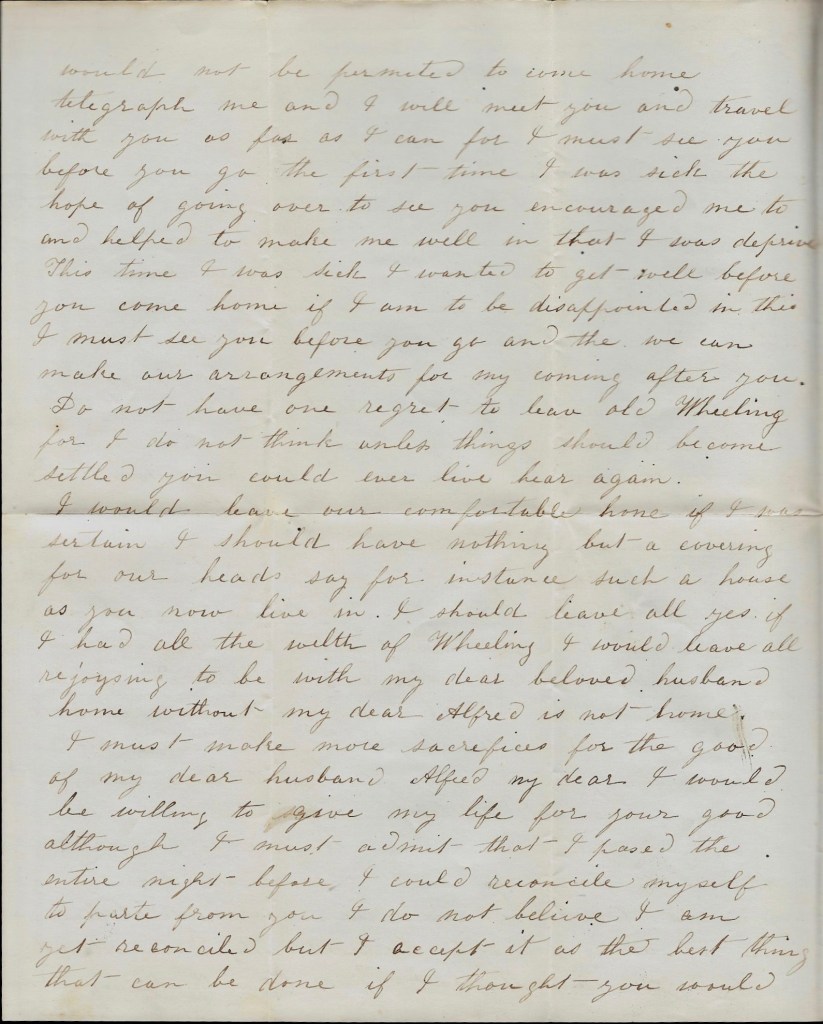 would not be permited to come home
telegraph me and I will meet you and travel
with you as far as I can for I must see you
before you go the first time I was sick the
hope of going over to see you encouraged me to
and helped to make me well in that I was deprive
This time I was sick I wanted to get well before
you come home if I am to be disappointed in this
I must see you before you go and the we can
make our arrangements for my coming after you.
Do not have one regret to leave old Wheeling
for I do not think unless things should become
settled you could ever live hear again.
I would leave our comfortable home if I was
sertain I should have nothing but a covering
for our heads say for instance such a house
as you now live in. I should leave all yes if
I had all the welth of Wheeling I would leave all
rejoysing to be with my dear beloved husband
home without my dear Alfred is not home.
I must make more sacrefices for the good
of my dear husband Alfred my dear I would
be willing to give my life for your good
although I must admit that I pased the
entire night before I could reconcile myself
to parte from you I do not believe I am
yet reconciled but I accept it as the best thing
that can be done if I thought you would